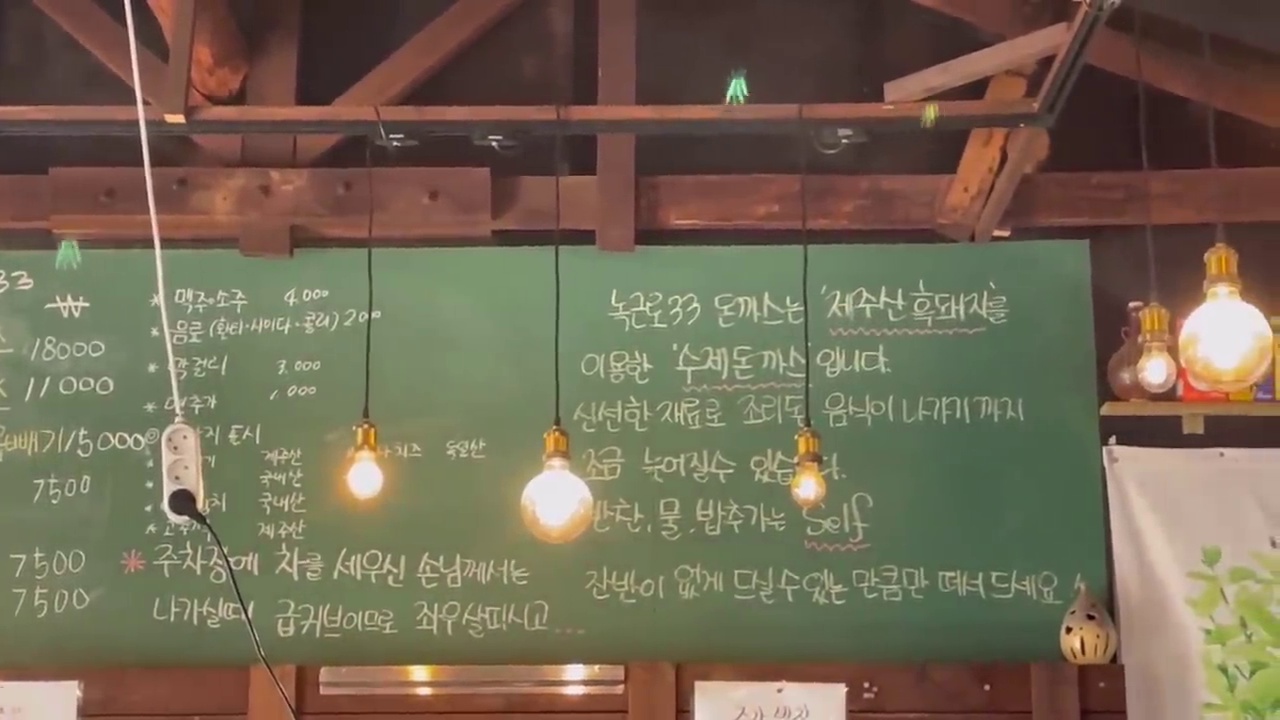 33
₩
18000
11000
뚝배기 15000
7500
7500
7500
* 맥주·소주 4.000
* 음료 (환타·사이다·콜라) 2000
* 막걸리 3.000
* 추가 1,000
◎ 원산지 표시
제주산 치즈 독일산
* 국내산
* 국내산
* 고춧가루 제주산
* 주차장에 차를 세우신 손님께서는
나가실때 급커브이므로 좌우살피시고...
녹근로33 돈까스는 '제주산흑돼지'를
이용한 '수제돈까스' 입니다.
신선한 재료로 조리된 음식이 나가기 까지
조금 늦어질수 있습니다.
반찬, 물, 밥추가는 Self
잔반이 없게 드실수있는 만큼만 떠서 드세요